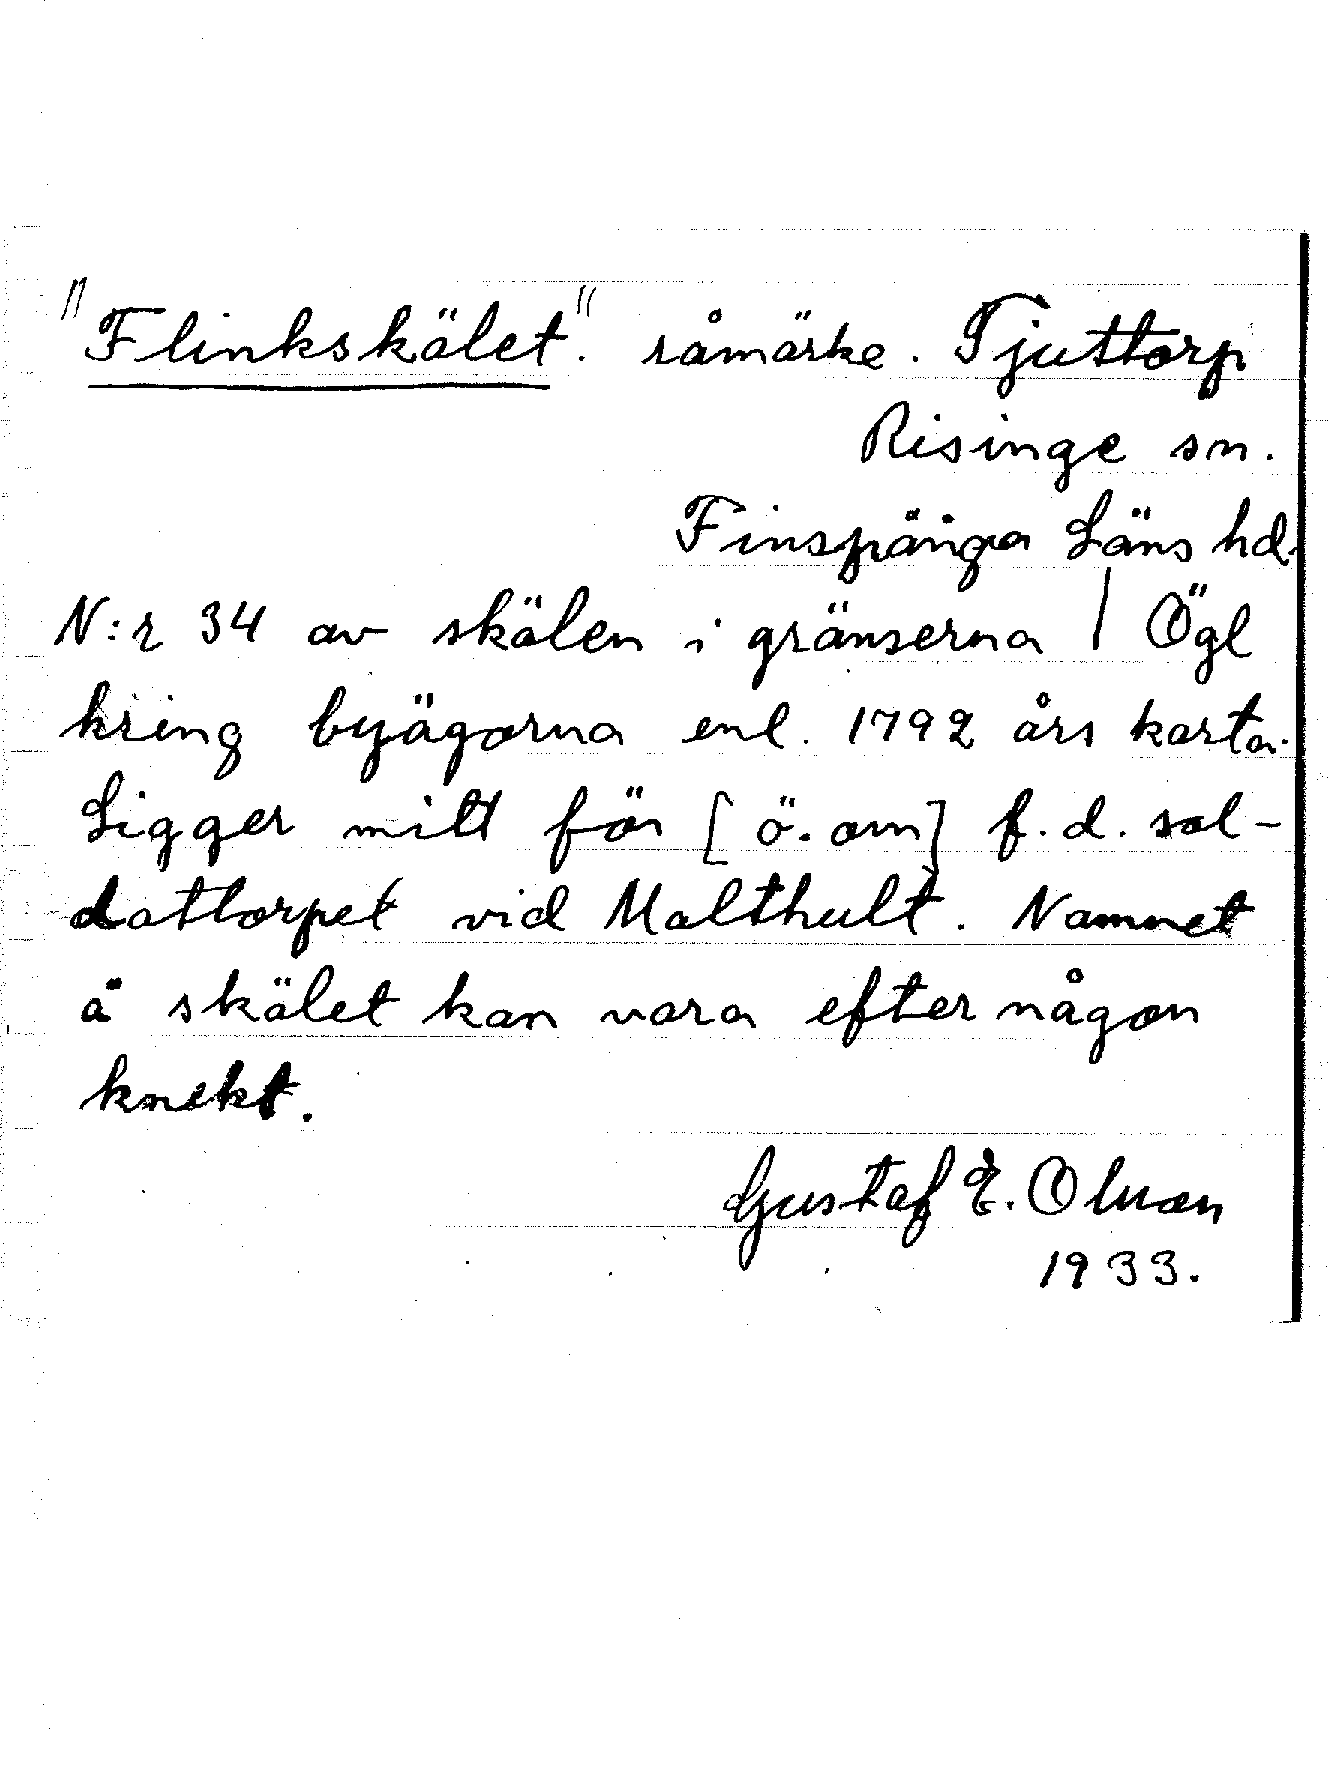 "Flinkskälet". råmärke. Tjuttorp
Risinge sn.
Finspånga Läns hd.
N:r 34 av skälen i gränserna | Ögl
kring byägorna enl. 1792 års karta.
Ligger mitt för [ö. om] f.d. sol-
dattorpet vid Malthult. Namnet
å skälet kan vara efter någon
knekt.
Gustaf E. Olsson
1933.